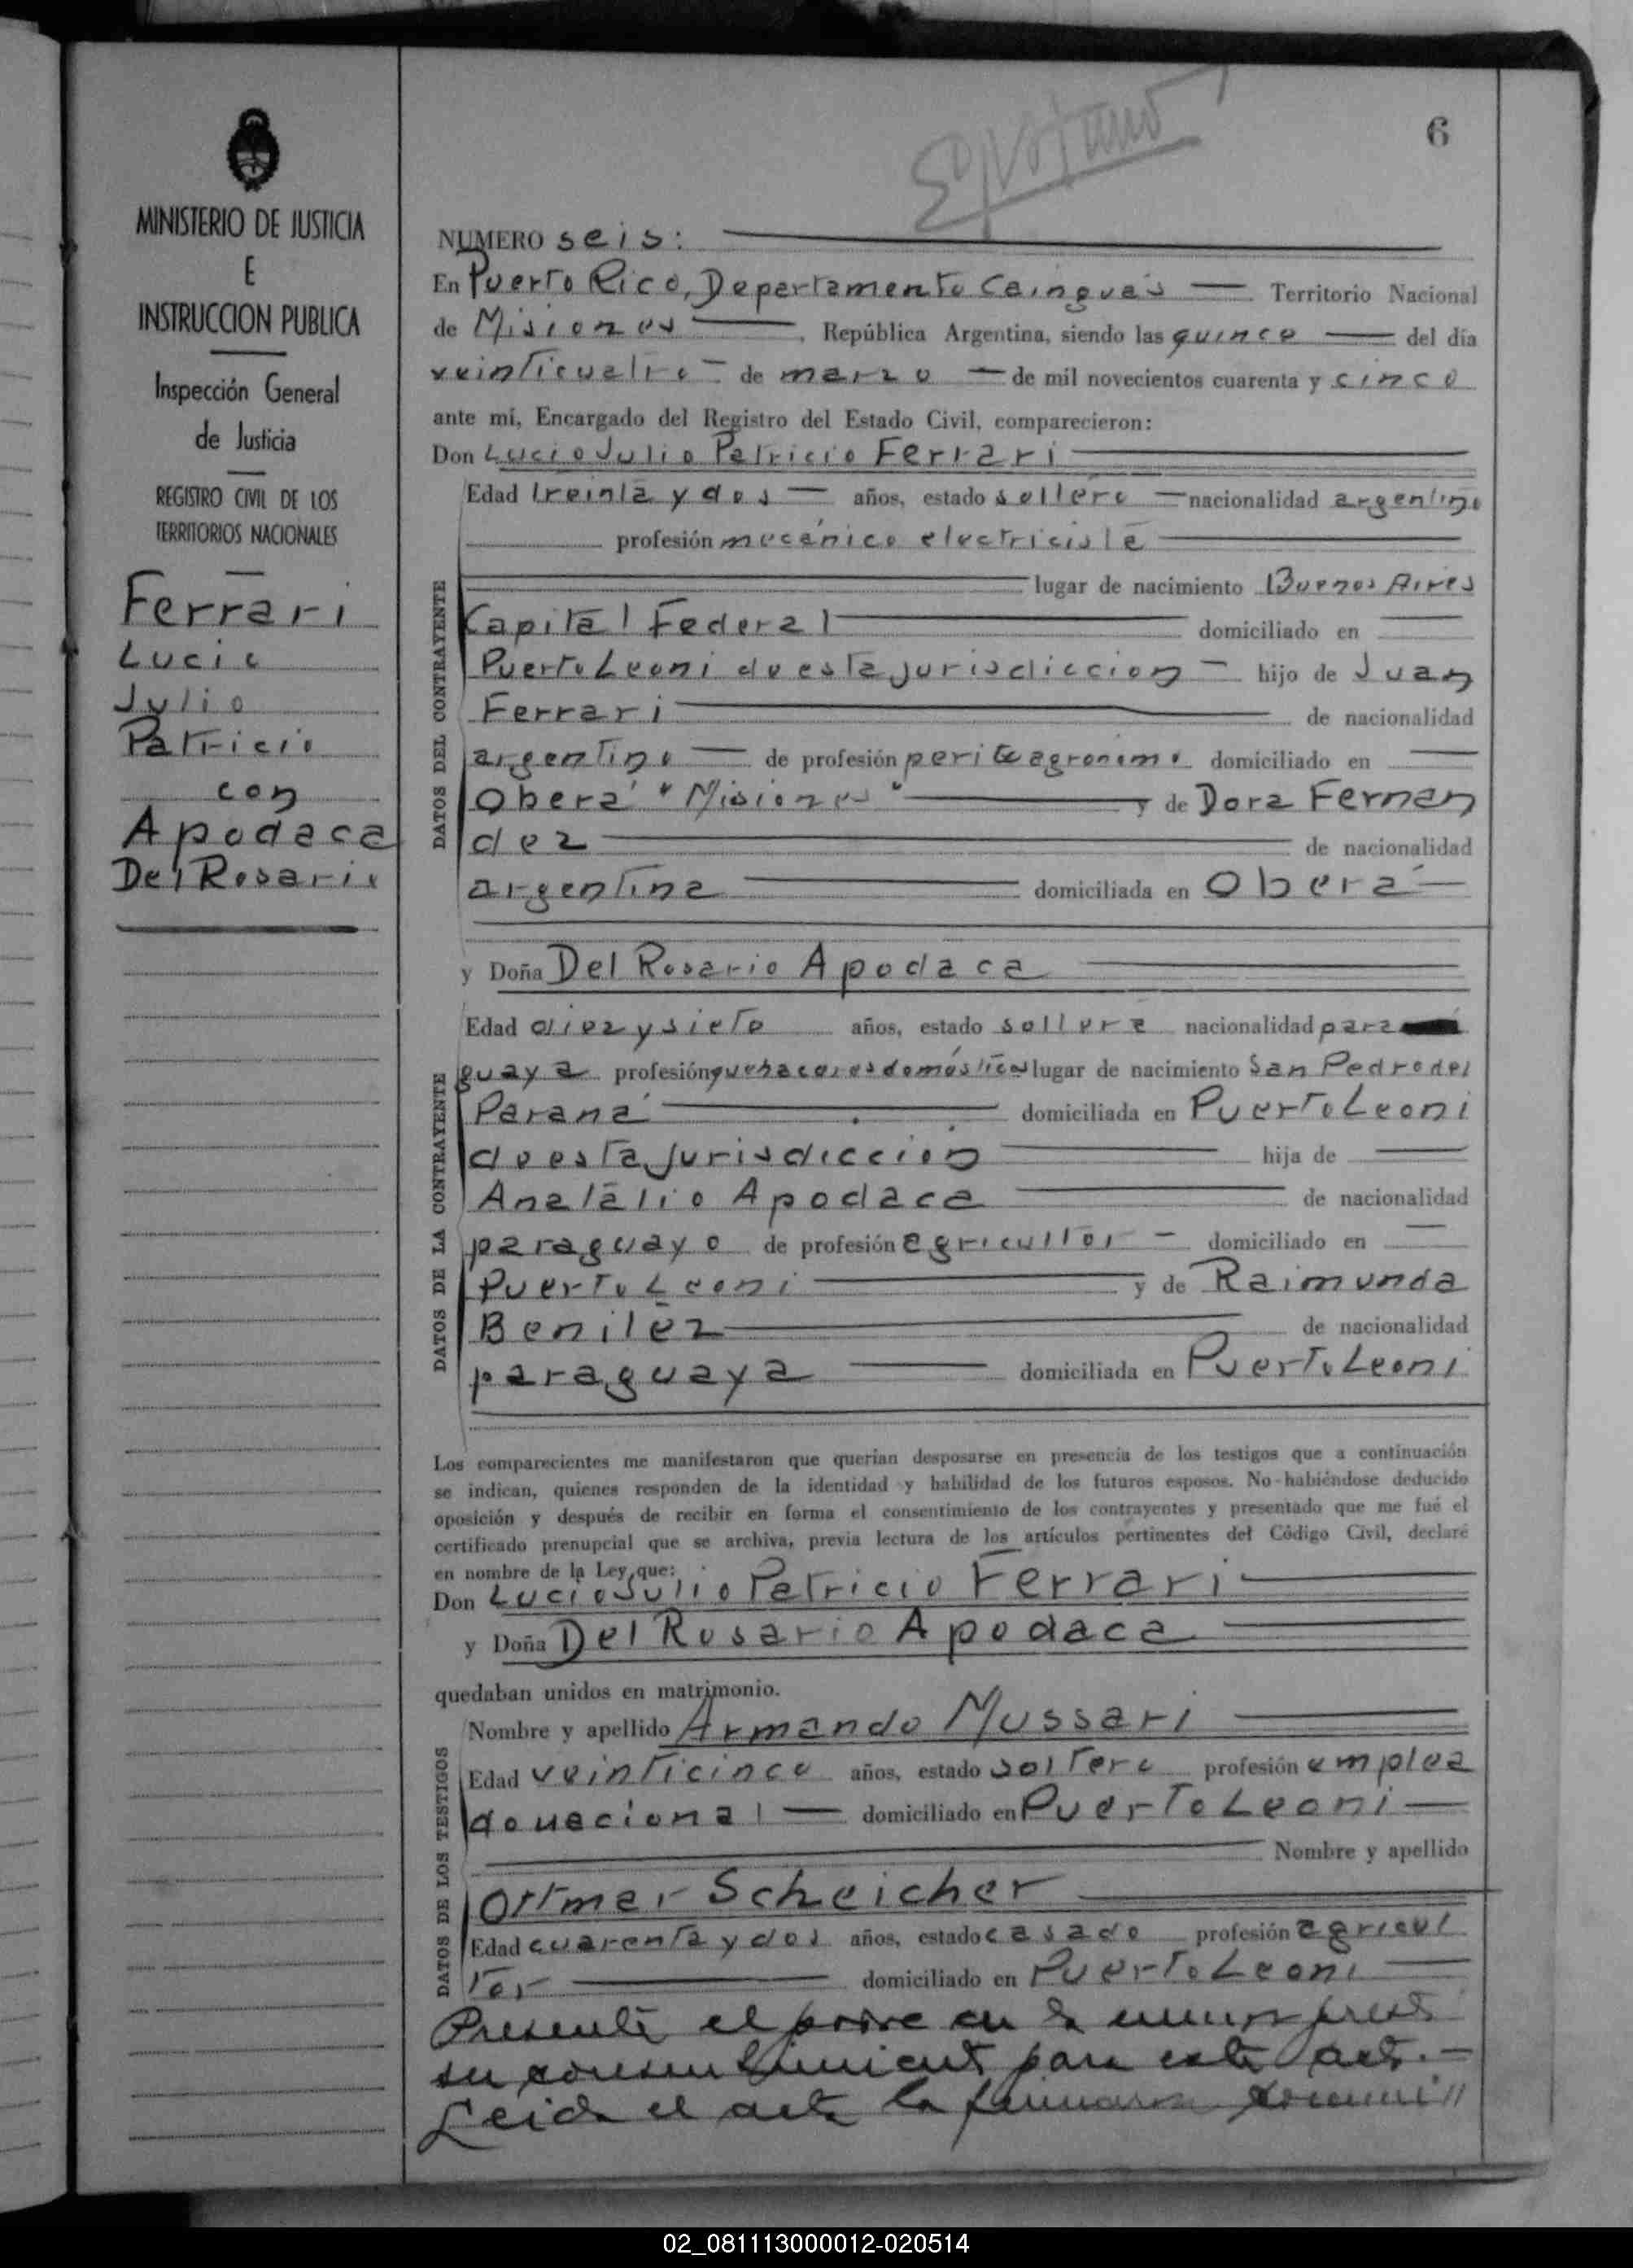 6
MINISTERIO DE JUSTICIA
E
INSTRUCCION PUBLICA
Inspección General
de Justicia
REGISTRO CIVIL DE LOS
TERRITORIOS NACIONALES
Ferrari
Lucio
Julio
Patricio
con
Apodaca
Del Rosario
NUMERO seis:
En Puerto Rico, Departamento Cainguás — Territorio Nacional
de Misiones —, República Argentina, siendo las quince — del día
veinticuatro — de marzo — de mil novecientos cuarenta y cinco
ante mí, Encargado del Registro del Estado Civil, comparecieron:
Don Lucio Julio Patricio Ferrari
DATOS DEL CONTRAYENTE
Edad treinta y dos — años, estado soltero — nacionalidad argentino
profesión mecánico electricista
lugar de nacimiento Buenos Aires
Capital Federal domiciliado en
Puerto Leoni de esta jurisdiccion — hijo de Juan
Ferrari de nacionalidad
argentino — de profesión perito agronomo domiciliado en
Oberá "Misiones" y de Dora Fernan
dez de nacionalidad
argentina domiciliada en Oberá
y Doña Del Rosario Apodaca
DATOS DE LA CONTRAYENTE
Edad diez y siete años, estado soltera nacionalidad para
guaya profesión quehaceres domésticos lugar de nacimiento San Pedro del
Paraná domiciliada en Puerto Leoni
de esta jurisdicción hija de
Anatalio Apodaca de nacionalidad
paraguayo de profesión agricultor — domiciliado en
Puerto Leoni y de Raimunda
Benitez de nacionalidad
paraguaya domiciliada en Puerto Leoni
Los comparecientes me manifestaron que querían desposarse en presencia de los testigos que a continuación
se indican, quienes responden de la identidad y habilidad de los futuros esposos. No habiéndose deducido
oposición y después de recibir en forma el consentimiento de los contrayentes y presentado que me fué el
certificado prenupcial que se archiva, previa lectura de los artículos pertinentes del Código Civil, declaré
en nombre de la Ley, que:
Don Lucio Julio Patricio Ferrari
y Doña Del Rosario Apodaca
quedaban unidos en matrimonio.
DATOS DE LOS TESTIGOS
Nombre y apellido Armando Mussari
Edad veinticinco años, estado soltero profesión emplea
do nacional — domiciliado en Puerto Leoni —
Nombre y apellido
Ottmar Scheicher
Edad cuarenta y dos años, estado casado profesión agricul
tor domiciliado en Puerto Leoni
Presente el padre en la
su consentimiento para este acto.—
Leida el acta la
02_081113000012-020514